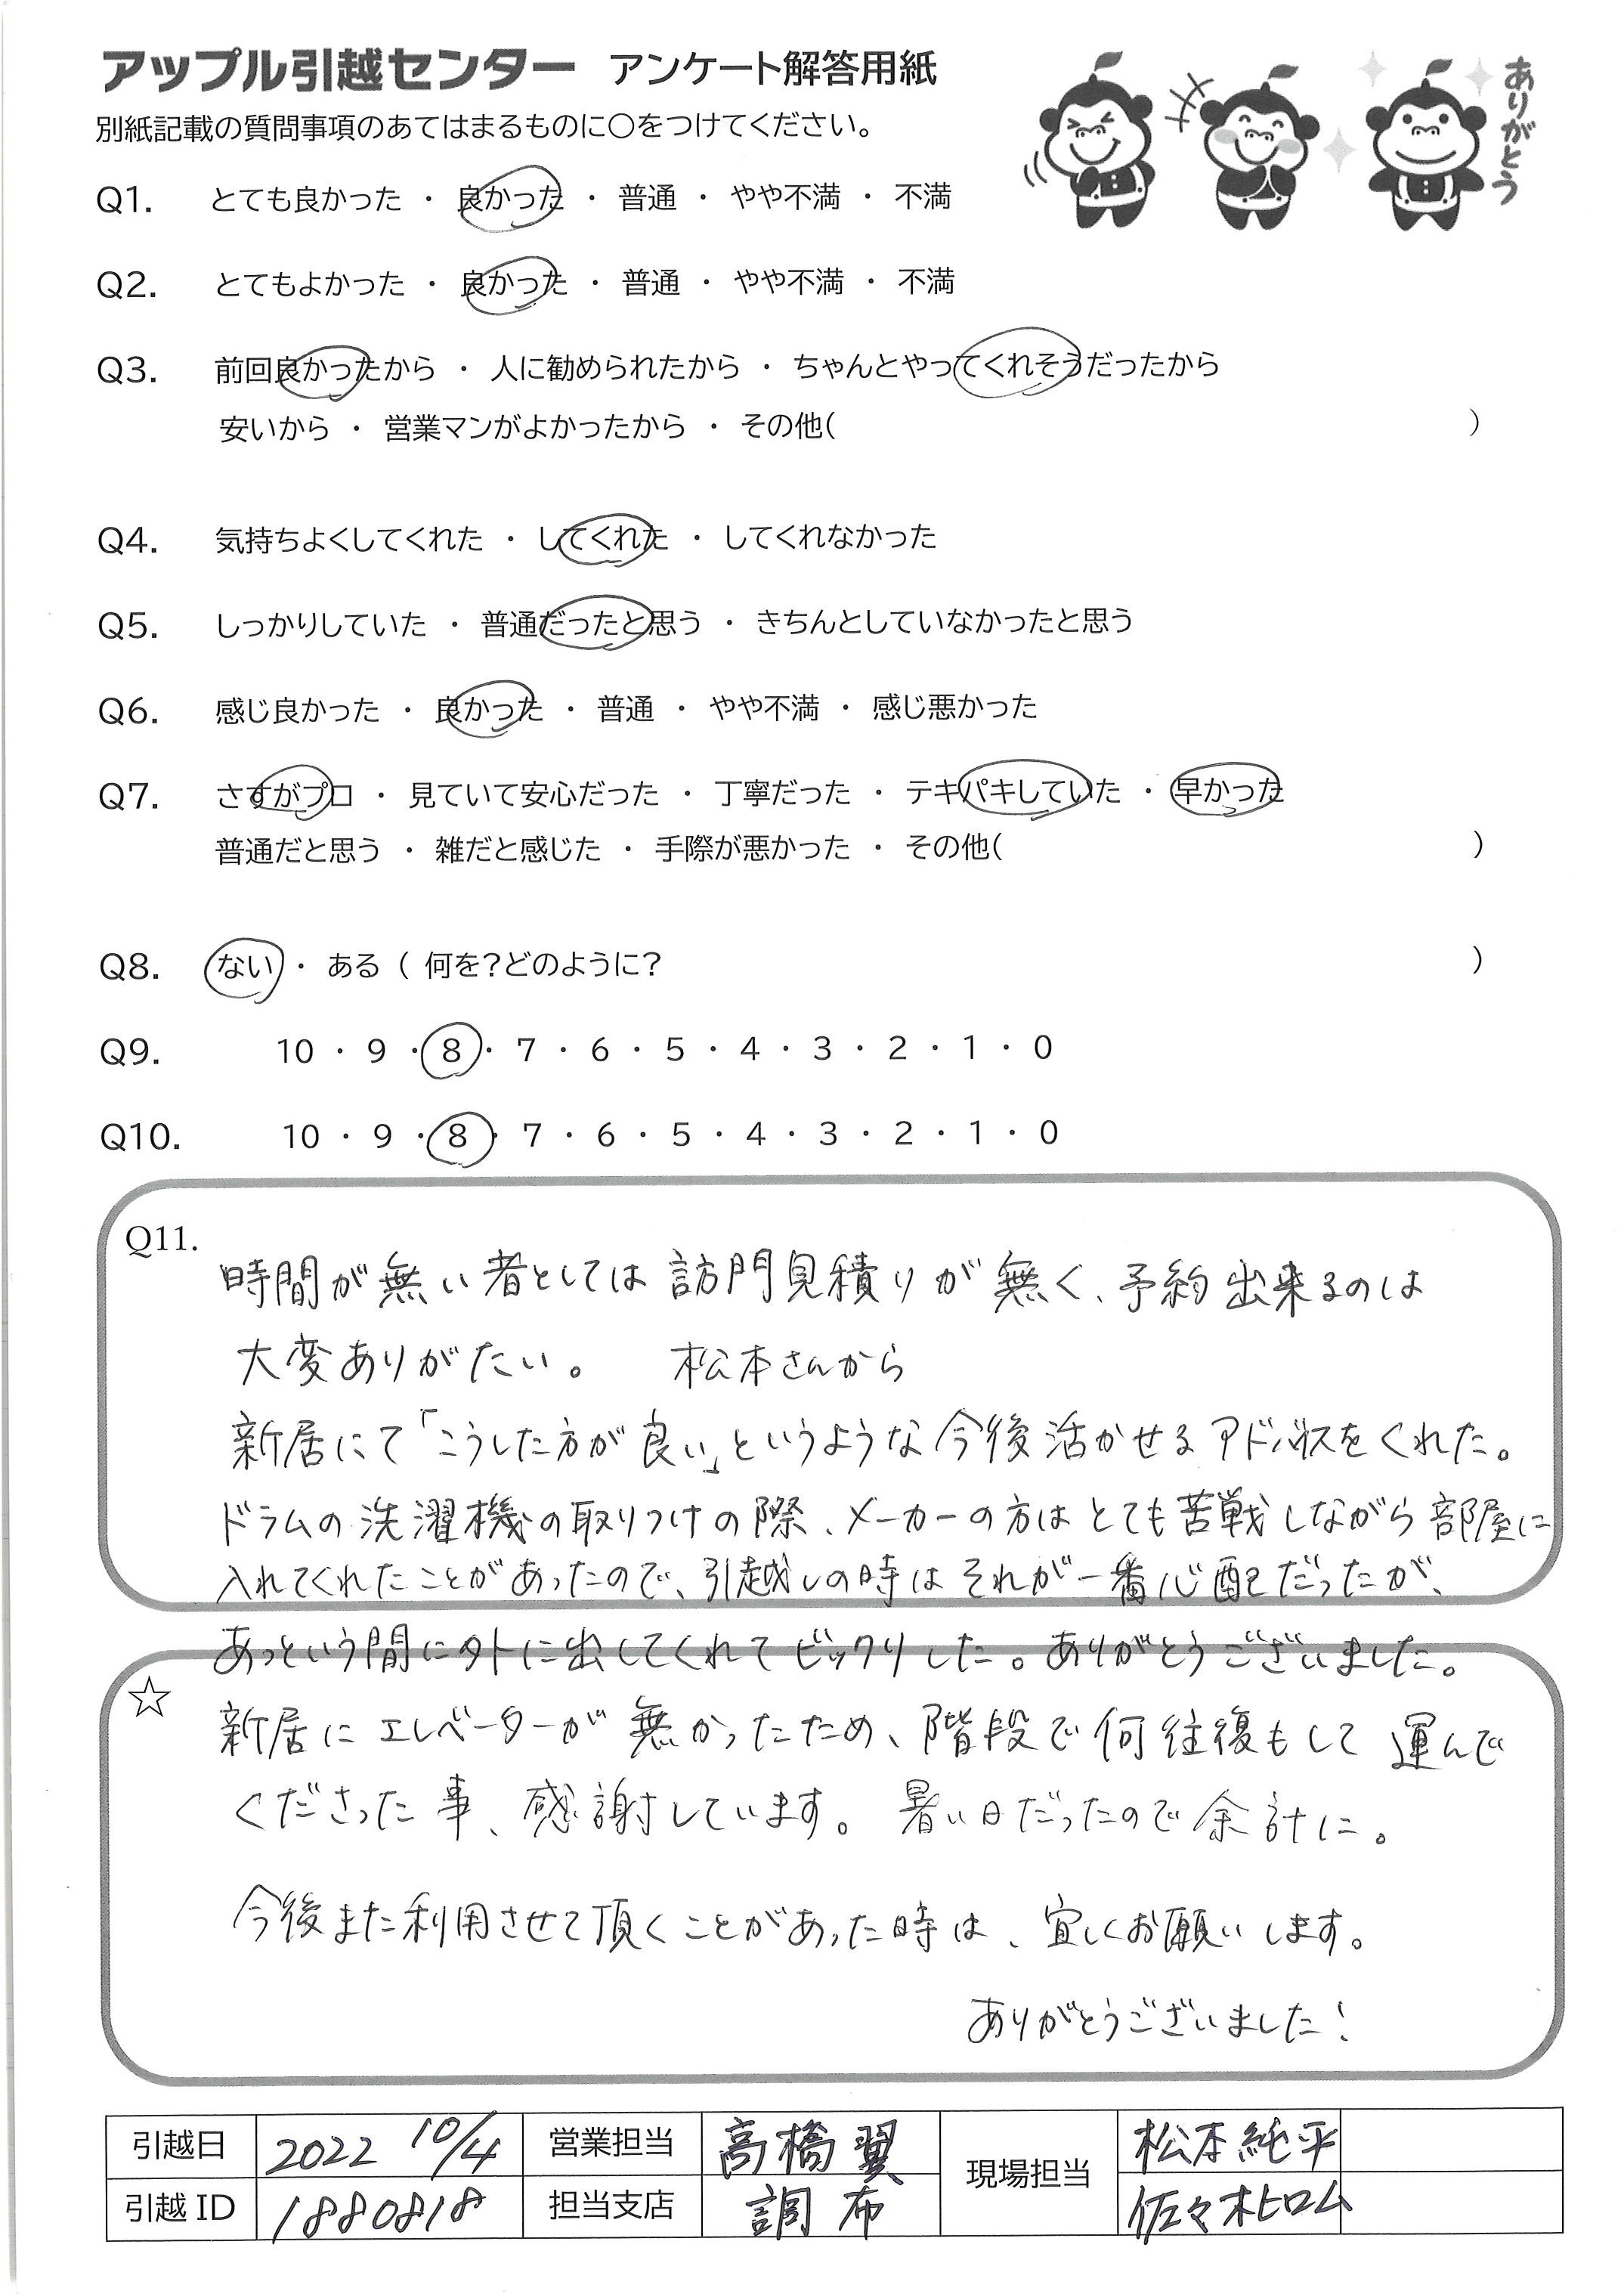 アップル引越センター アンケート解答用紙
ありがとう
別紙記載の質問事項のあてはまるものに○をつけてください。
Q1. とても良かった ・ 良かった ・ 普通 ・ やや不満 ・ 不満
Q2. とてもよかった ・ 良かった ・ 普通 ・ やや不満 ・ 不満
Q3. 前回良かったから ・ 人に勧められたから ・ ちゃんとやってくれそうだったから
安いから ・ 営業マンがよかったから ・ その他( )
Q4. 気持ちよくしてくれた ・ してくれた ・ してくれなかった
Q5. しっかりしていた ・ 普通だったと思う ・ きちんとしていなかったと思う
Q6. 感じ良かった ・ 良かった ・ 普通 ・ やや不満 ・ 感じ悪かった
Q7. さすがプロ ・ 見ていて安心だった ・ 丁寧だった ・ テキパキしていた ・ 早かった
普通だと思う ・ 雑だと感じた ・ 手際が悪かった ・ その他( )
Q8. ない ・ ある ( 何を?どのように? )
Q9. 10 ・ 9 ・ 8 ・ 7 ・ 6 ・ 5 ・ 4 ・ 3 ・ 2 ・ 1 ・ 0
Q10. 10 ・ 9 ・ 8 ・ 7 ・ 6 ・ 5 ・ 4 ・ 3 ・ 2 ・ 1 ・ 0
Q11.
時間が無い者としては訪問見積りが無く、予約出来るのは
大変ありがたい。 松本さんから
新居にて「こうした方が良い」というような今後活かせるアドバイスをくれた。
ドラムの洗濯機の取りつけの際、メーカーの方はとても苦戦しながら部屋に
入れてくれたことがあったので、引越しの時はそれが一番心配だったが、
あっという間に外に出してくれてビックリした。ありがとうございました。
☆
新居にエレベーターが無かったため、階段で何往復もして運んで
くださった事、感謝しています。暑い日だったので余計に。
今後また利用させて頂くことがあった時は、宜しくお願いします。
ありがとうございました!
引越日 2022 10/4 営業担当 高橋翼 現場担当 松本純平
引越ID 1880818 担当支店 調布 佐々木ヒロム